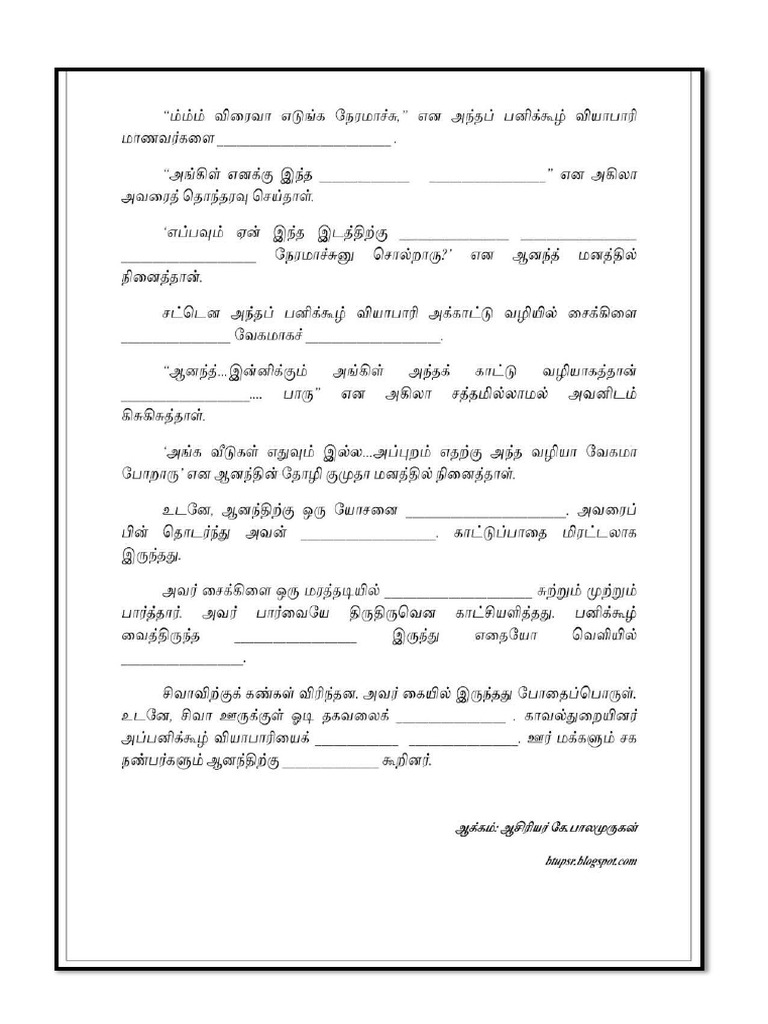 “ம்ம்ம் விரைவா எடுங்க நேரமாச்சு,” என அந்தப் பனிக்கூழ் வியாபாரி
மாணவர்களை ____________________ .
“அங்கிள் எனக்கு இந்த ____________ ________________” என அகிலா
அவரைத் தொந்தரவு செய்தாள்.
‘எப்பவும் ஏன் இந்த இடத்திற்கு _______________ ________________
__________________ நேரமாச்சுனு சொல்றாரு?’ என ஆனந்த் மனத்தில்
நினைத்தான்.
சட்டென அந்தப் பனிக்கூழ் வியாபாரி அக்காட்டு வழியில் சைக்கிளை
_______________ வேகமாகச் __________________.
“ஆனந்த்...இன்னிக்கும் அங்கிள் அந்தக் காட்டு வழியாகத்தான்
_________________.... பாரு” என அகிலா சத்தமில்லாமல் அவனிடம்
கிசுகிசுத்தாள்.
‘அங்க வீடுகள் எதுவும் இல்ல...அப்புறம் எதற்கு அந்த வழியா வேகமா
போறாரு’ என ஆனந்தின் தோழி குமுதா மனத்தில் நினைத்தாள்.
உடனே, ஆனந்திற்கு ஒரு யோசனை ______________________. அவரைப்
பின் தொடர்ந்து அவன் __________________. காட்டுப்பாதை மிரட்டலாக
இருந்தது.
அவர் சைக்கிளை ஒரு மரத்தடியில் ____________________ சுற்றும் முற்றும்
பார்த்தார். அவர் பார்வையே திருதிருவென காட்சியளித்தது. பனிக்கூழ்
வைத்திருந்த ________________ இருந்து எதையோ வெளியில்
________________.
சிவாவிற்குக் கண்கள் விரிந்தன. அவர் கையில் இருந்தது போதைப்பொருள்.
உடனே, சிவா ஊருக்குள் ஓடி தகவலைக் _______________ . காவல்துறையினர்
அப்பனிக்கூழ் வியாபாரியைக் ___________ _______________. ஊர் மக்களும் சக
நண்பர்களும் ஆனந்திற்கு _____________ கூறினர்.
ஆக்கம்: ஆசிரியர் கே.பாலமுருகன்
btupsr.blogspot.com